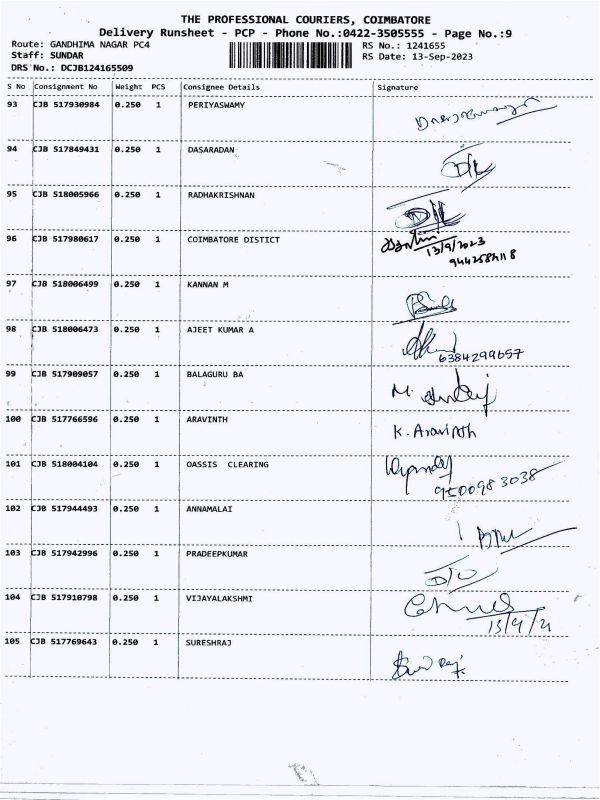 THE PROFESSIONAL COURIERS, COIMBATORE
Delivery Runsheet - PCP - Phone No.:0422-3505555 - Page No.:9
Route: GANDHIMA NAGAR PC4 RS No.: 1241655
Staff: SUNDAR RS Date: 13-Sep-2023
DRS No.: DCJB124165509
S No Consignment No Weight PCS Consignee Details Signature
93 CJB 517930984 0.250 1 PERIYASWAMY
94 CJB 517849431 0.250 1 DASARADAN
95 CJB 518005966 0.250 1 RADHAKRISHNAN
96 CJB 517980617 0.250 1 COIMBATORE DISTICT
13/9/2023
97 CJB 518006499 0.250 1 KANNAN M
98 CJB 518006473 0.250 1 AJEET KUMAR A
6384299657
99 CJB 517909057 0.250 1 BALAGURU BA
100 CJB 517766596 0.250 1 ARAVINTH
K. Aravinth
101 CJB 518004104 0.250 1 OASSIS CLEARING
9500983038
102 CJB 517944493 0.250 1 ANNAMALAI
103 CJB 517942996 0.250 1 PRADEEPKUMAR
104 CJB 517910798 0.250 1 VIJAYALAKSHMI
13/9/21
105 CJB 517769643 0.250 1 SURESHRAJ